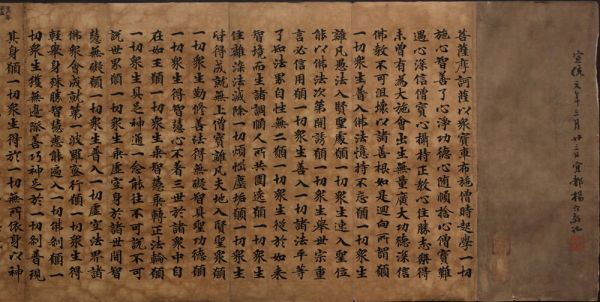 宣統元年三月廿三日宜都楊守敬記
菩薩摩訶薩以衆寶車布施僧時起學一切
施心智善了心淨功德心隨順捨心僧寶難
遇心深信僧寶心攝持正教心住勝志樂得
未曾有為大施會出生無量廣大功德深信
佛教不可沮壞以諸善根如是迴向所謂願
一切衆生普入佛法憶持不忘願一切衆生
離凡愚法入賢聖處願一切衆生速入聖位
能以佛法次第開誘願一切衆生舉世宗重
言必信用願一切衆生善入一切諸法平等
了知法界自性無二願一切衆生從於如來
智境而生諸調順人所共圍遶願一切衆生
住離染法滅除一切煩惱塵垢願一切衆生皆
得成就無上僧寶離凡夫地入賢聖衆願
一切衆生勤修善法得無礙智具聖功德願
一切衆生得智慧心不着三世於諸衆中自
在如王願一切衆生乘智慧乘轉正法輪願
一切衆生具足神通一念能往不可說不可
說世界願一切衆生乘虛空身於諸世間智
慧無礙願一切衆生普入一切虛空法界諸
佛衆會成就第一波羅蜜行願一切衆生得
輕舉身殊勝智慧悉能遍入一切佛刹願一
切衆生獲無邊際善巧神足於一切刹普現
其身願一切衆生得於一切無所依身以神